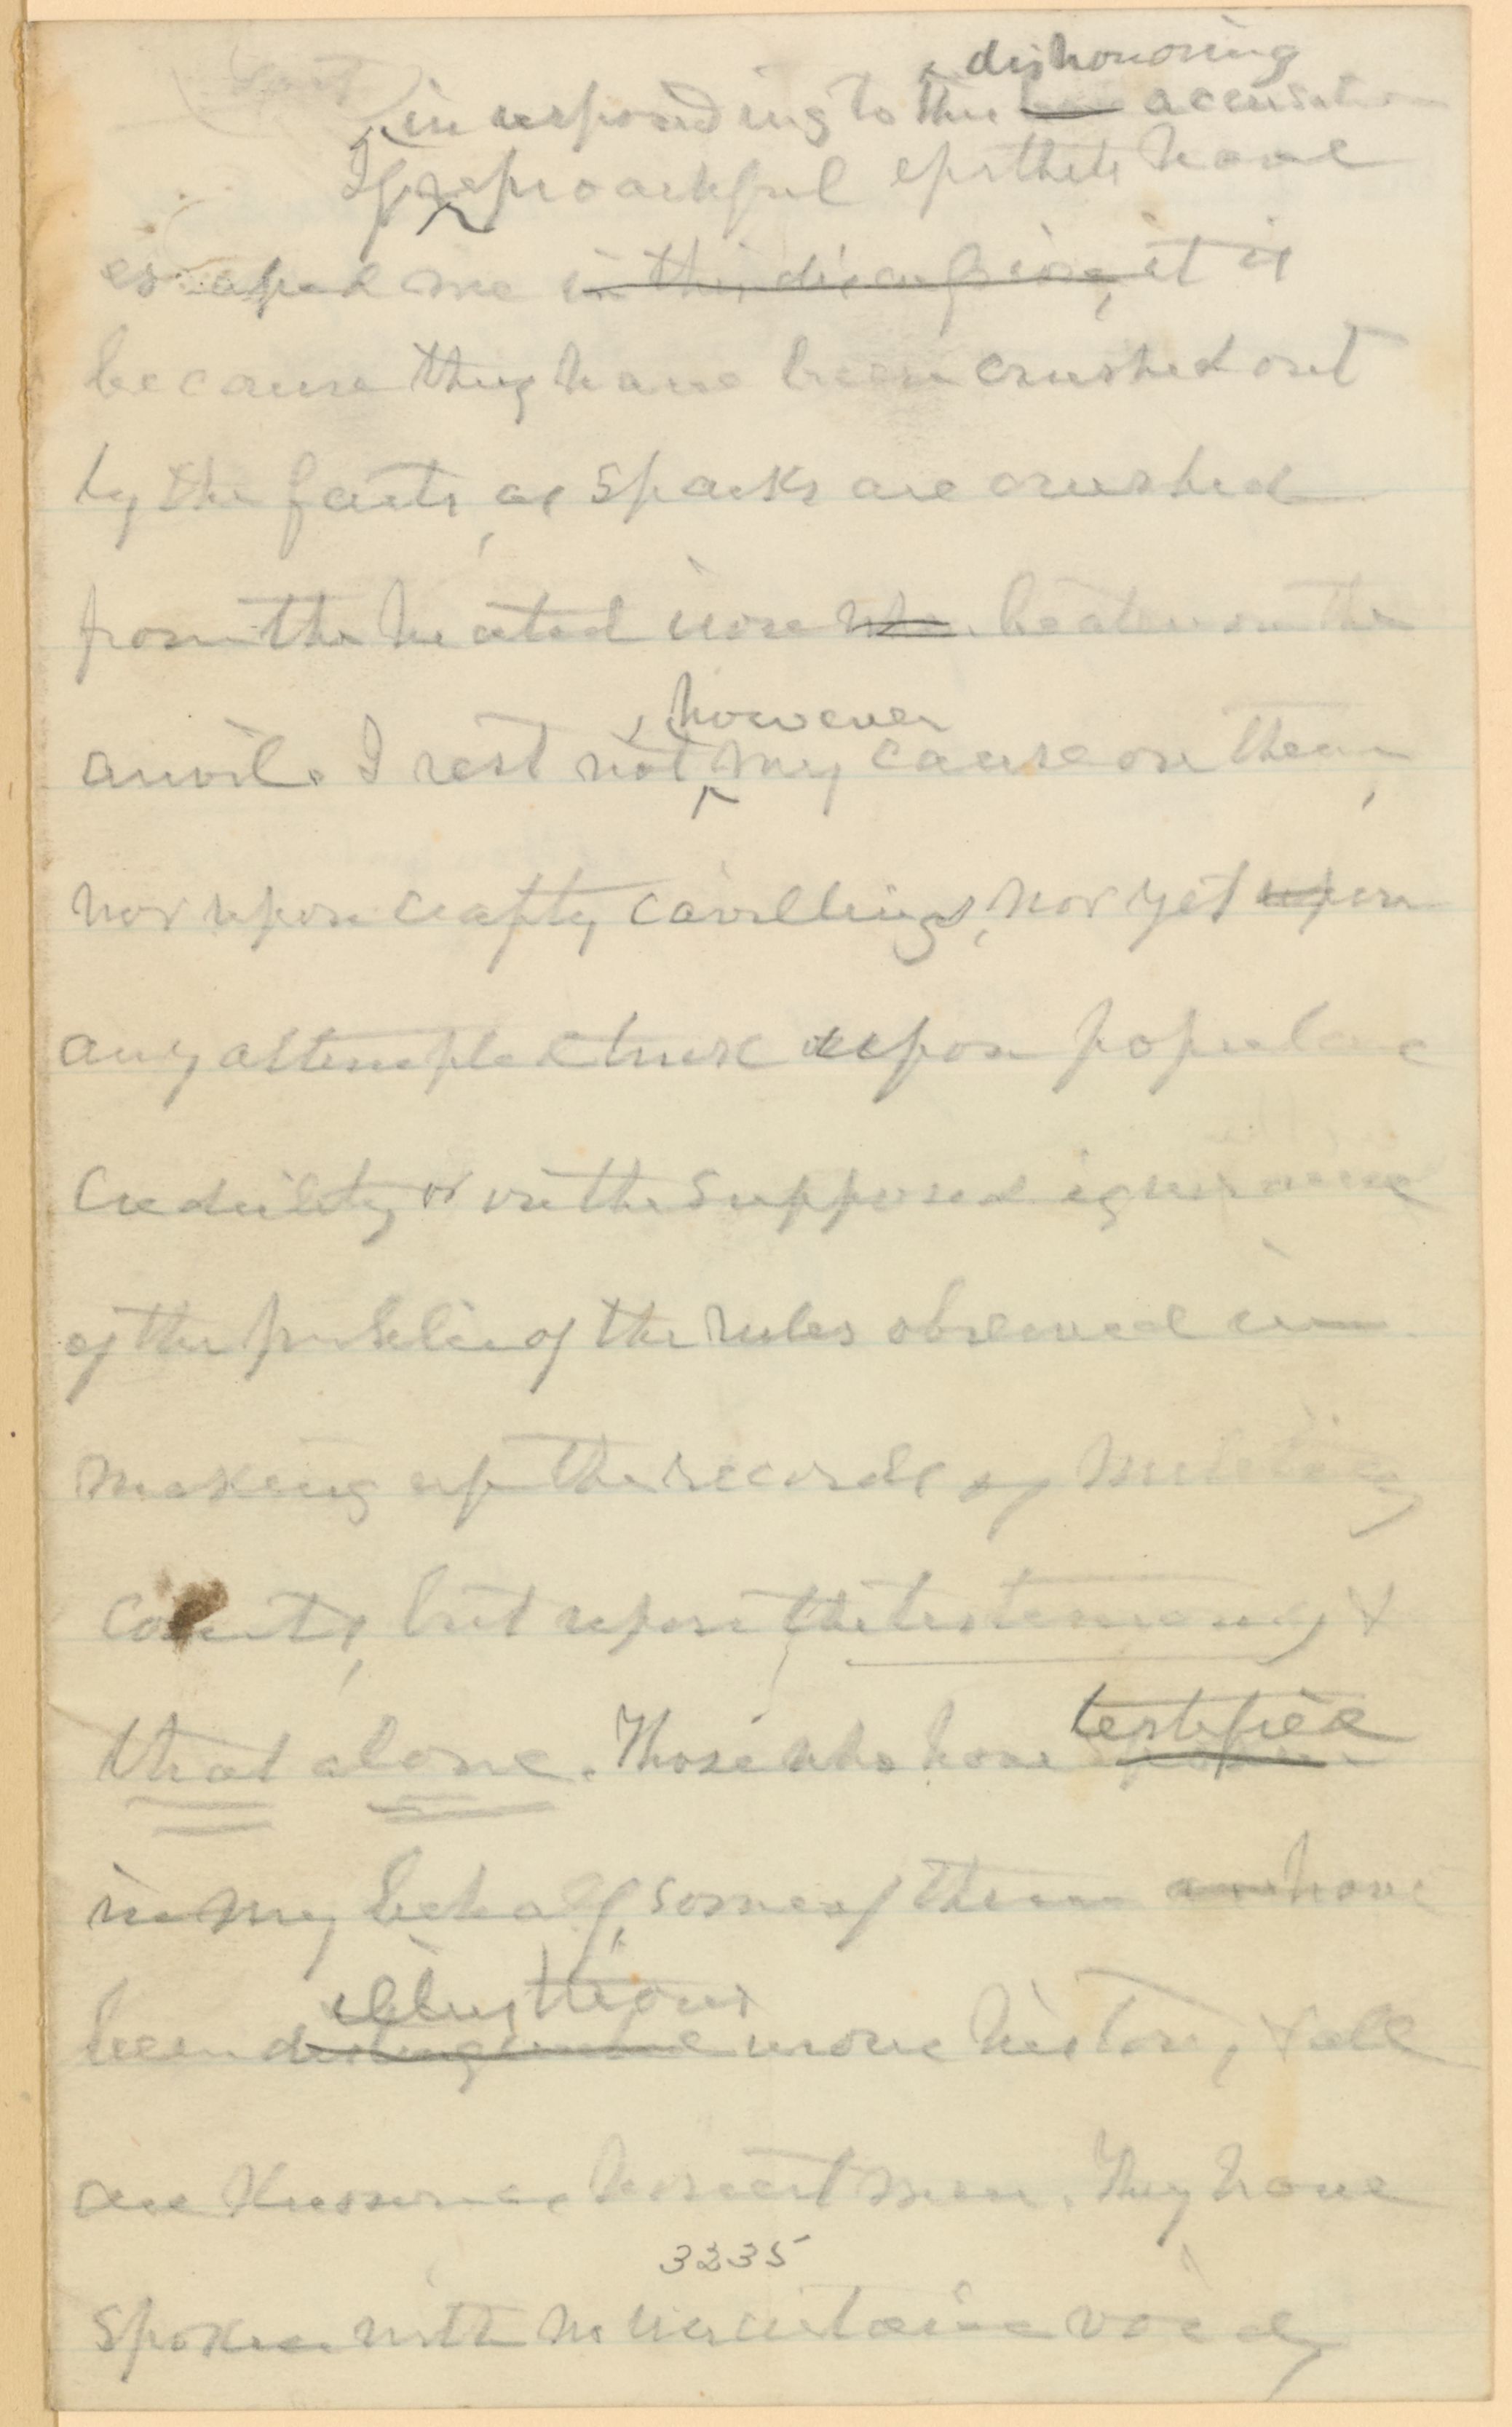 dishonoring
in responding to this accusation
If reproachful epithets have
escaped me in this discussion, it is
because they have been crushed out
by the facts, as sparks are crushed
from the heated iron when beaten on the
anvil. I rest not, however my cause on them,
nor upon crafty cavillings, nor yet upon
any attempted trick upon popular
credulity or on the supposed ignorance
of the public of the rules observed in
making up the records of military
courts, but upon the testimony &
that alone. Those who have testified
in my behalf, some of them are have
illustrious
been distinguished in our history, & all
are known as honest men. They have
3235
spoken with no uncertain voice,